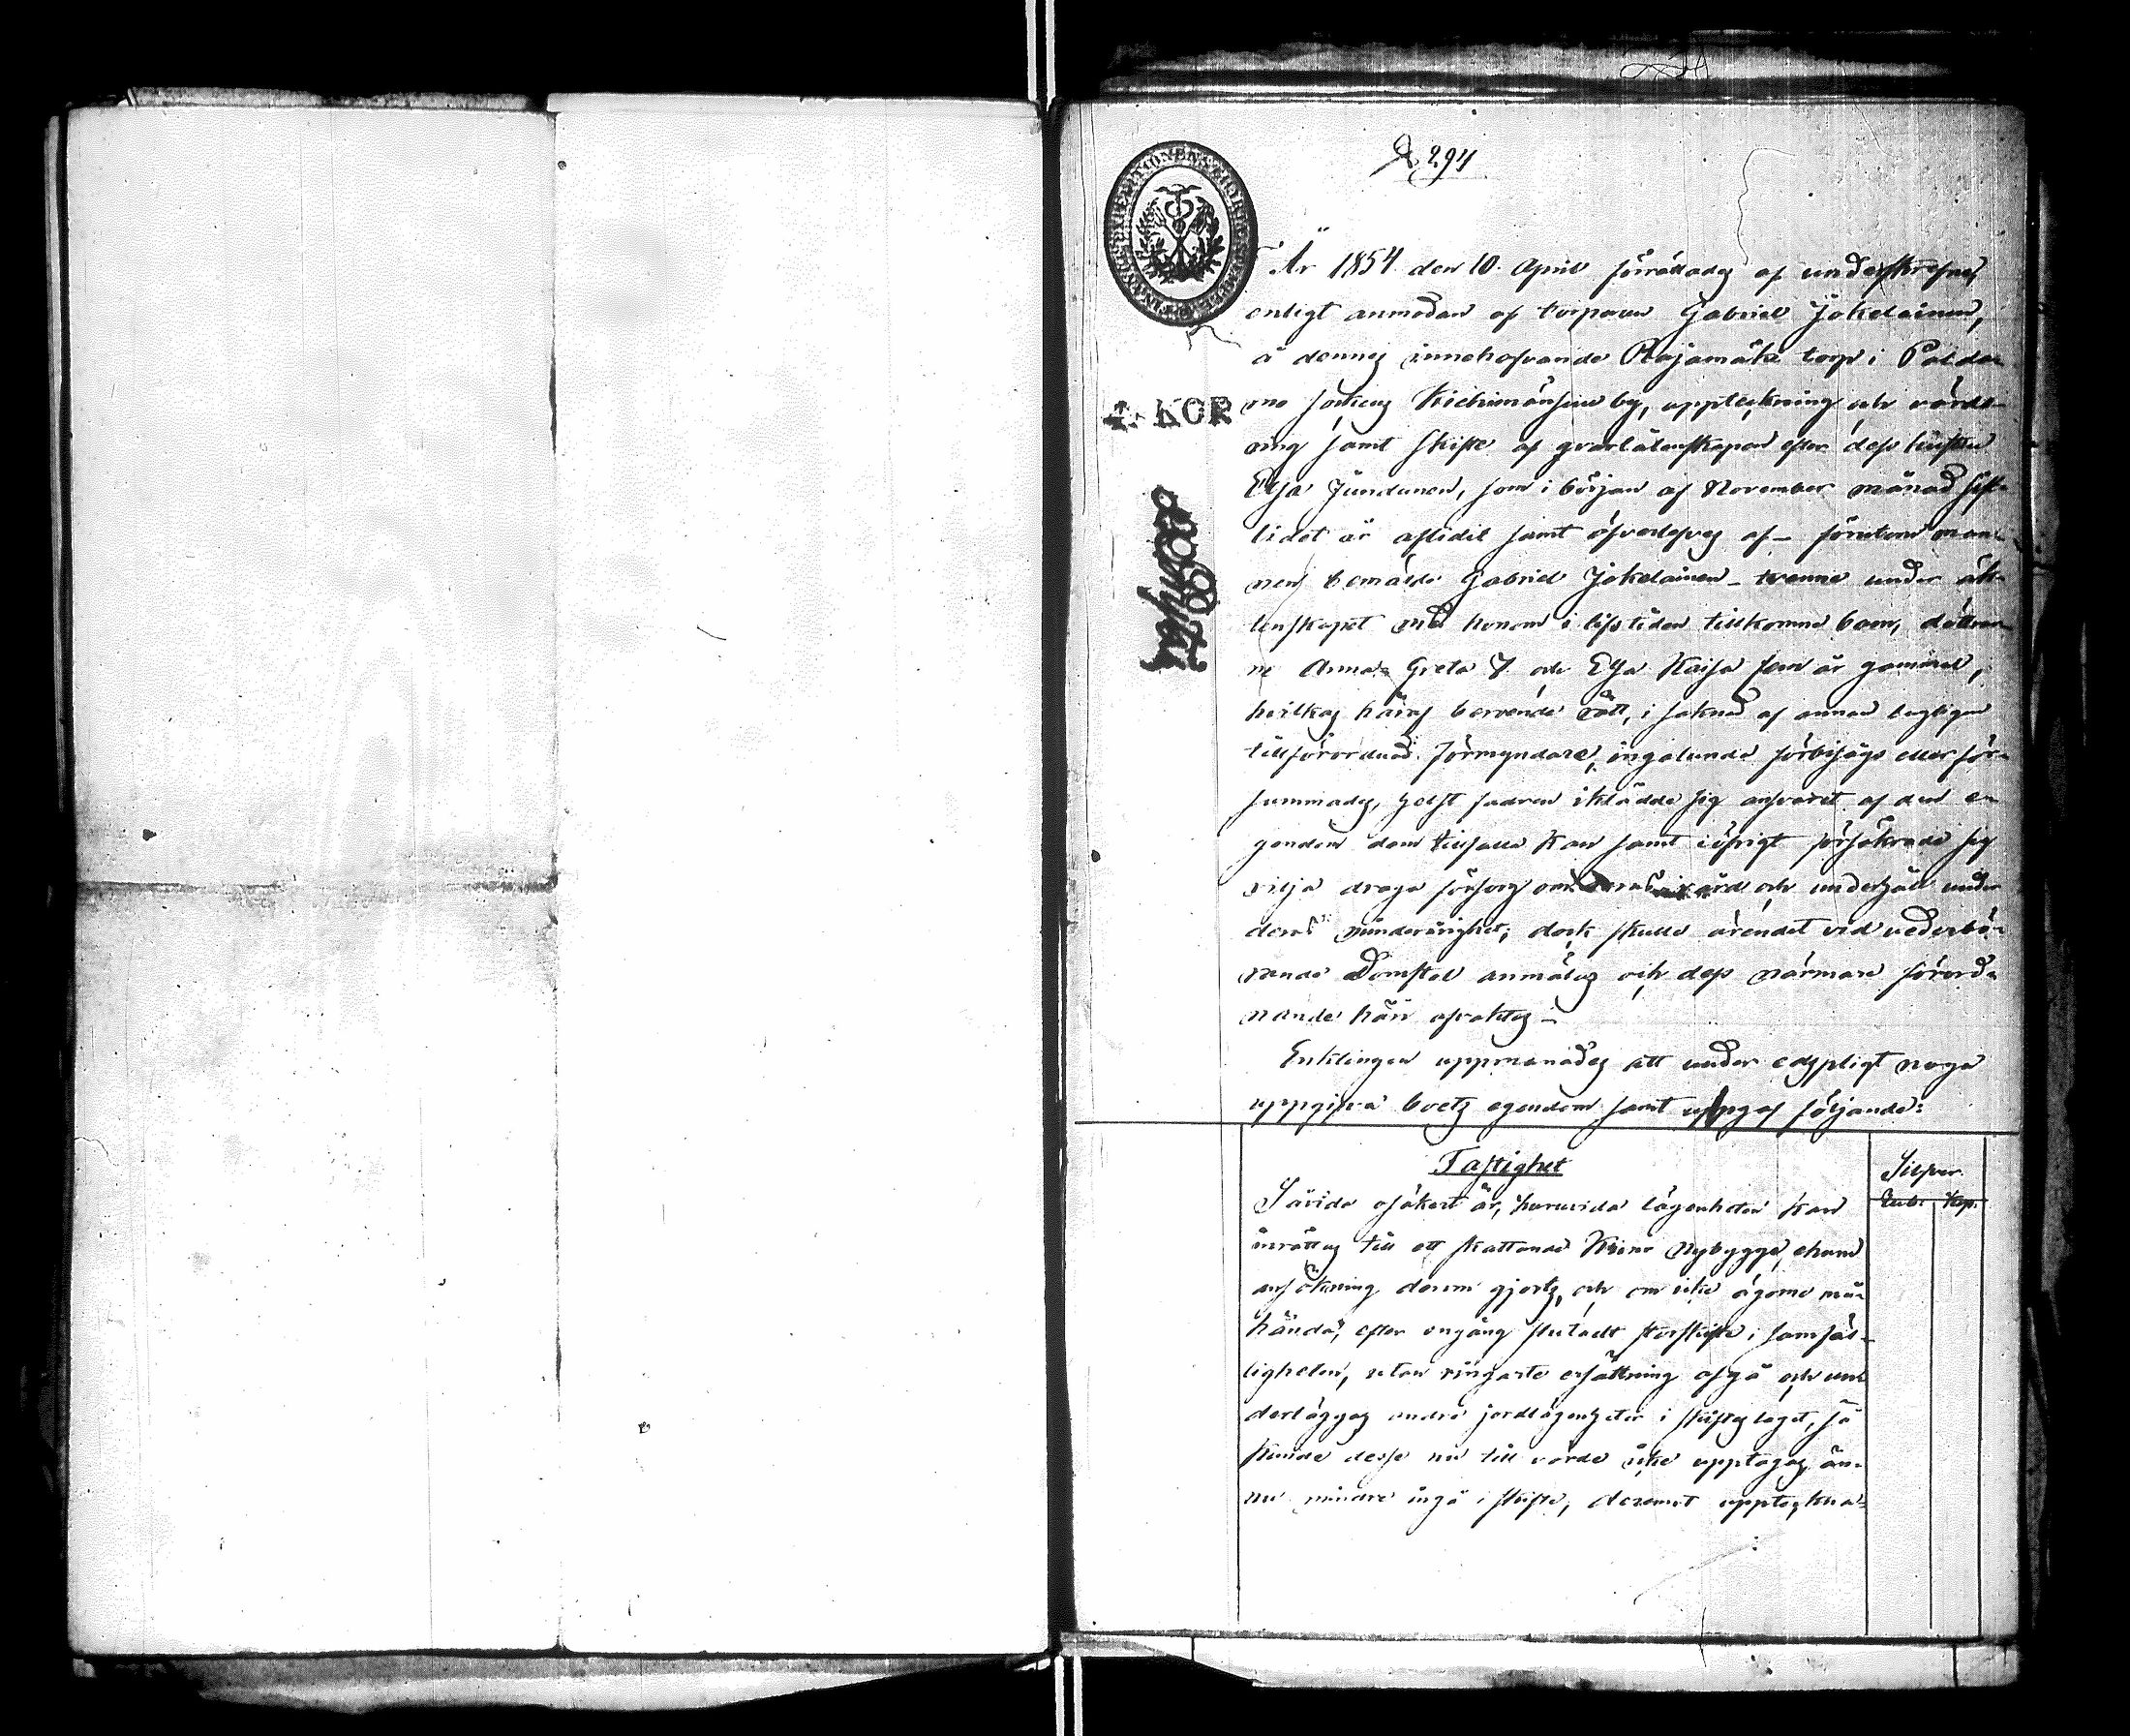 294
År 1854 den 10 April förrättades af undertecknad,
enligt anmodan af torparen Gabriel Jokelainen,
å dennes innehafvande Rajamäki torp i Palda-
mo sockens Kiehimänsuu by, uppteckning och värde-
ring samt skifte af qvarlåtenskapen efter dess hustru
Elsa Jundunen, som i början af November månad sist-
lidet år aflidit samt öfverlefves af – förutom man-
nen bemälde Gabriel Jokelainen – tvenne under äk-
tenskapet med honom i lifstiden tillkomne barn, döttrar-
ne Anna Greta 7 och Elsa Kaisa fem år gammal,
hvilkas häraf beroende rätt, i saknad af annan lagligen
tillförordnad förmyndare, ingalunda förbisågs eller för-
summades, helst fadren iklädde sig ansvaret af den e-
gendom dem tillfalla kan samt i öfrigt försäkrade sig
vilja draga försorg om deras vård och underhåll under
deras minderårighet; dock skulle ärendet vid vederbö-
rande Domstol anmälas och dess närmare förord-
nande häri afvaktas –
Enklingen uppmanades att under edsplikt noga
uppgifva boets egendom samt uppgaf följande:
Fastighet
Silfver
Rub. Kop.
Såvida osäkert är, huruvida lägenheten kan
inrättas till ett skattande Krono Nybygge, ehuru
ansökning derom gjorts, och om icke ägorne må-
hända, efter engång slutadt storskifte i samfäl-
ligheten, utan ringaste ersättning afgå och un-
derläggas andra jordlägenheter i skifteslaget, så
kunde desse nu till värde icke upptagas än-
nu mindre ingå i skifte, deremot upptekna-